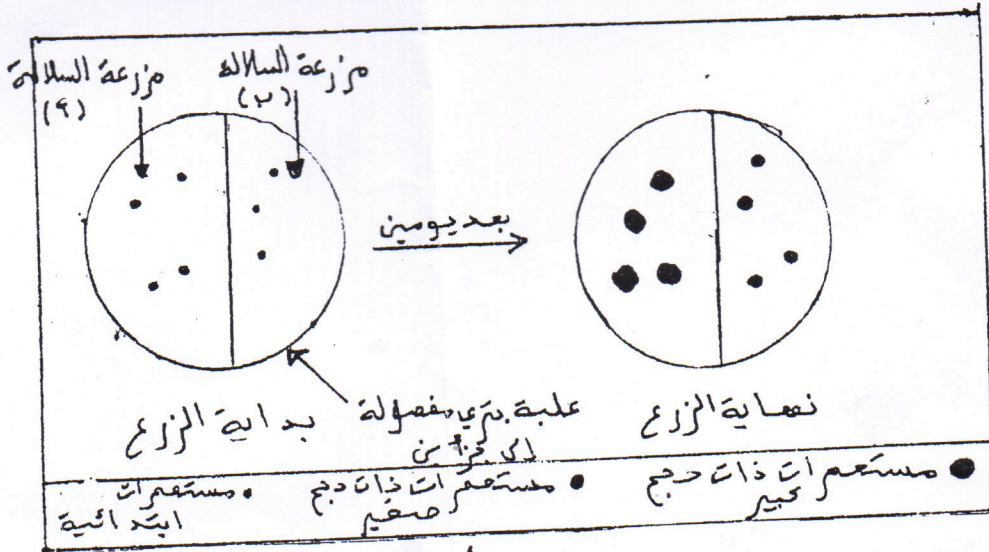 مزرعة السلالة
(٩)
مزرعة السلالة
(ب)
بعد يومين
بداية الزرع
علبة بتري مفصولة
إلى جزأين
نهاية الزرع
مستعمرات ذات حجم
كبير
مستعمرات ذات حجم
صغير
مستعمرات
ابتدائية